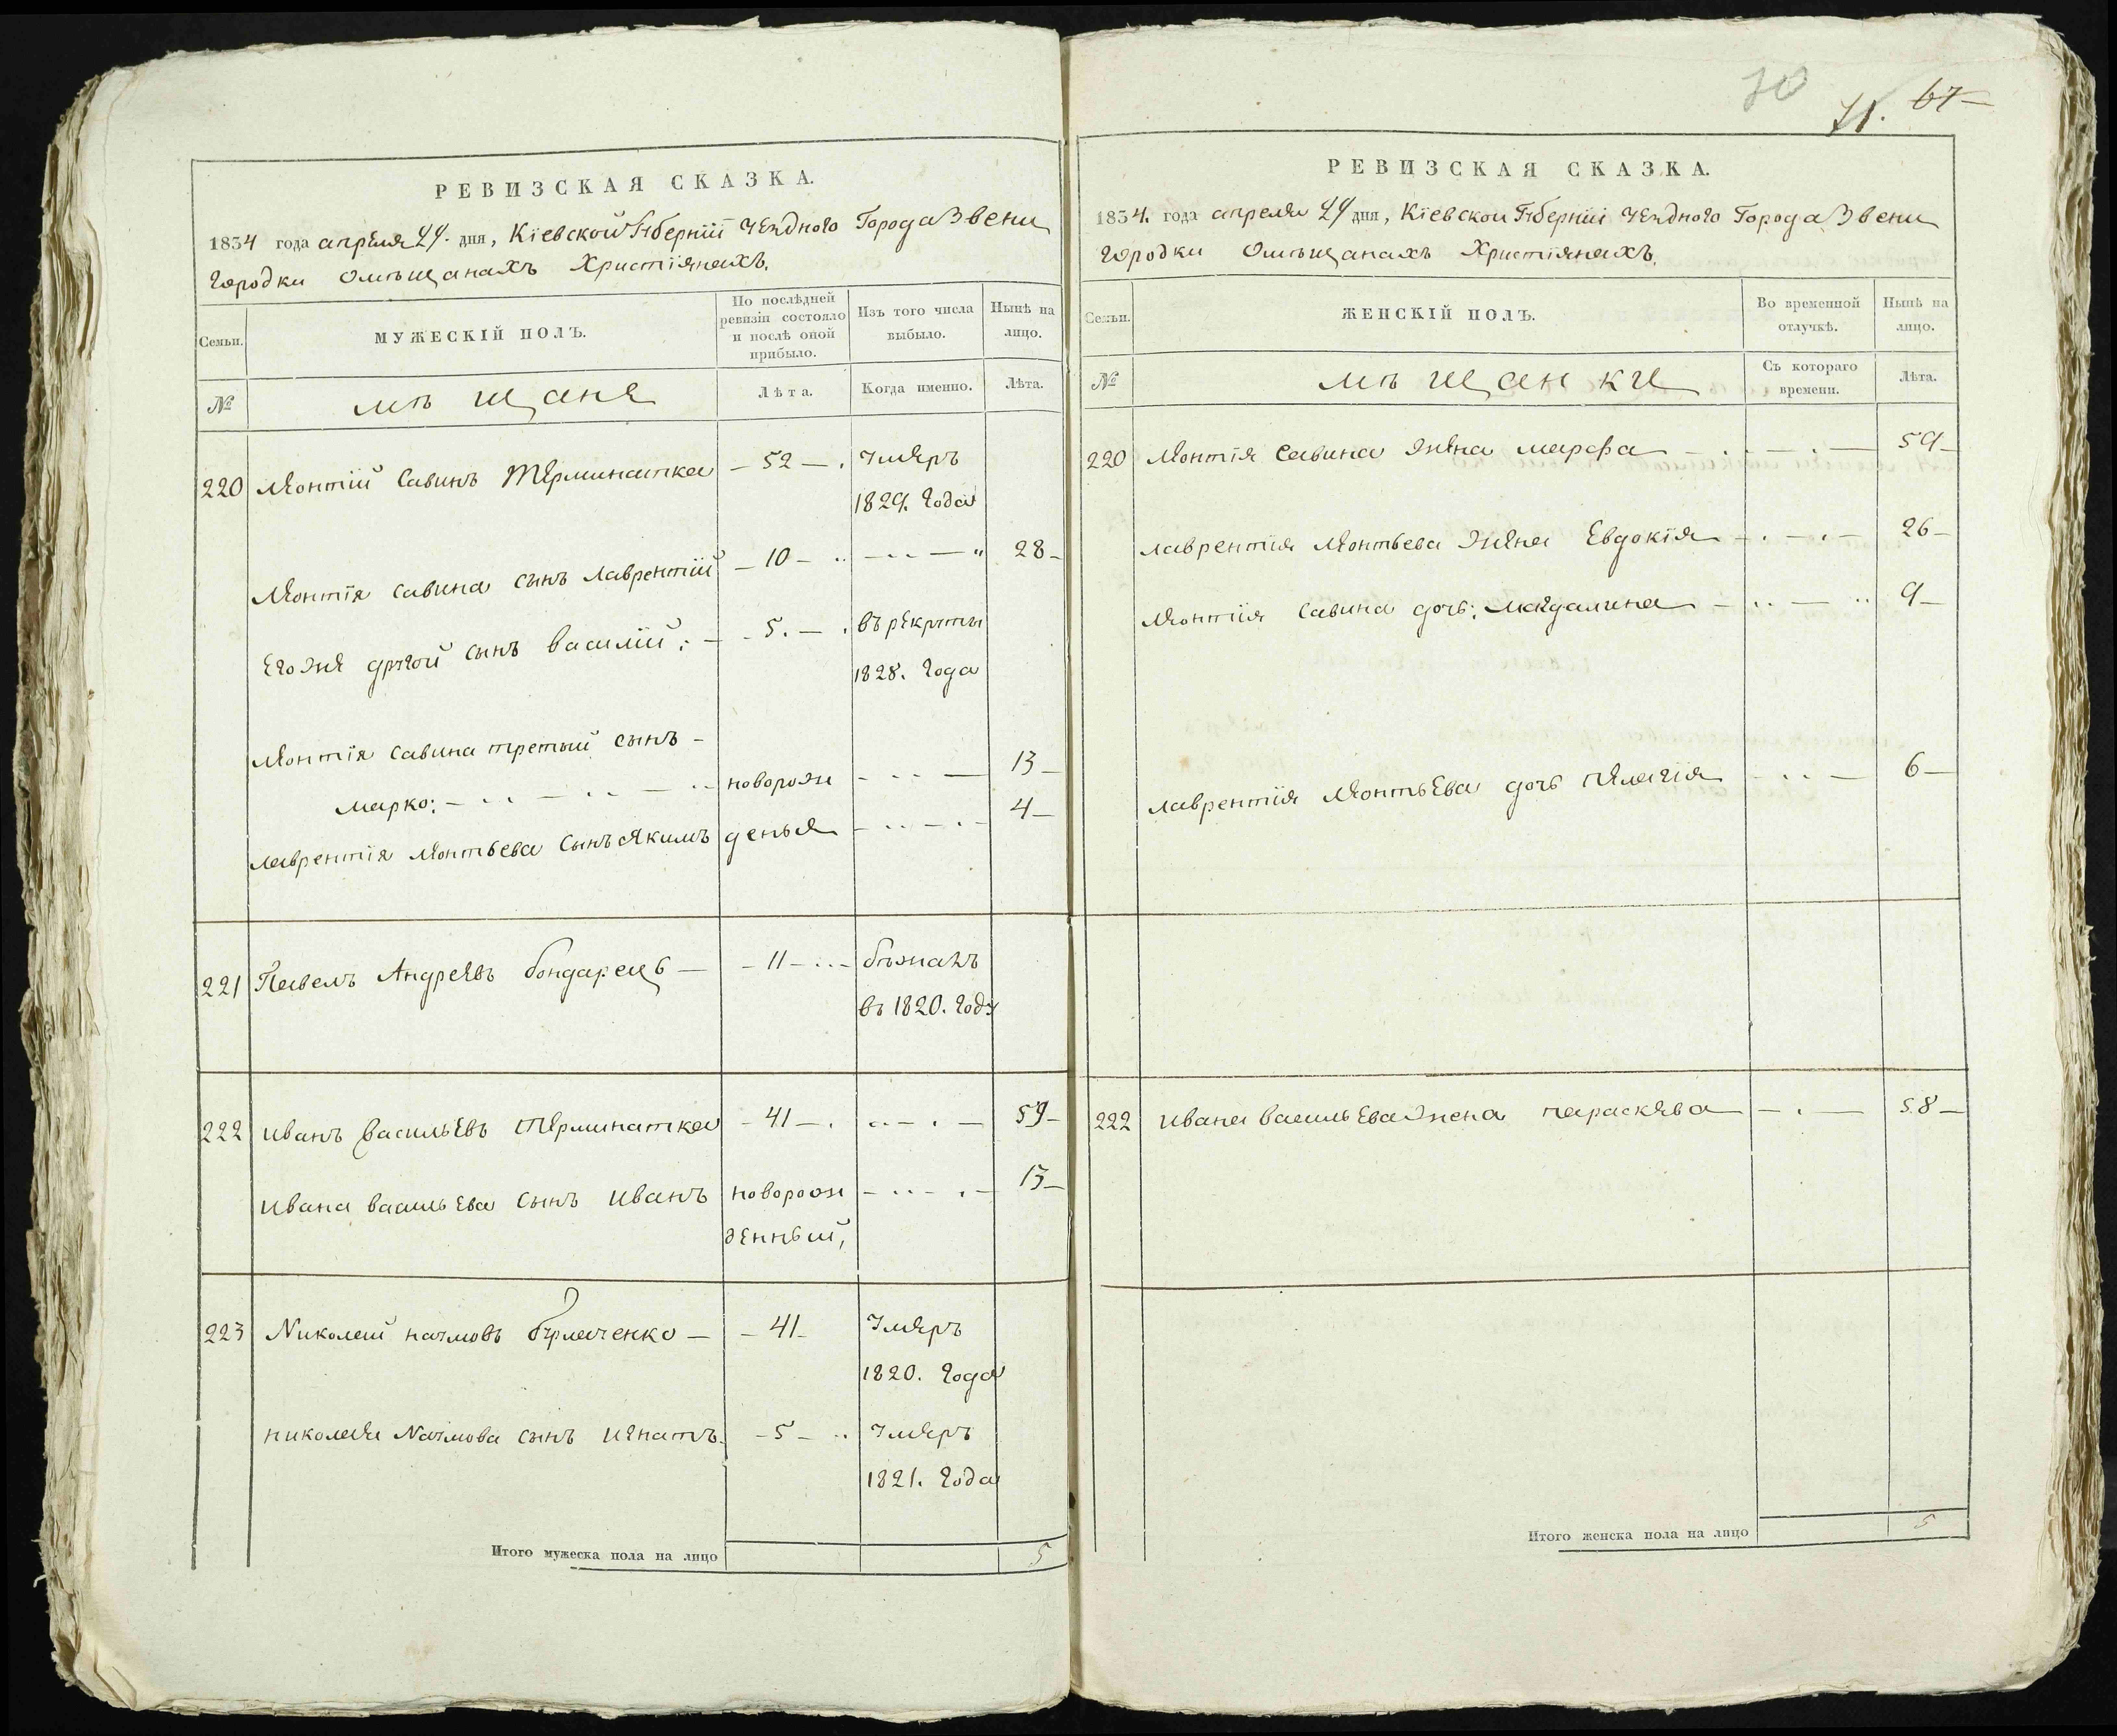 РЕВИЗСКАЯ СКАЗКА.
1834 года апреля 24. дня, Кіевской Губерніи уезднаго Города Звени
городки омѣщанахъ Христіянахъ.
Семьи.
МУЖЕСКІЙ ПОЛЪ.
По послѣдней
ревизіи состояло
и послѣ оной
прибыло.
Изъ того числа
выбыло.
Нынѣ на
лицо.
№
мѣщане
Лѣта.
Когда именно.
Лѣта.
220 Леонтій Савинъ Терминатка — 52 — . Умеръ
1829. Года
Леонтія Савина сынъ Лаврентій — 10 — 28 —
Его же другой сынъ Василій: — 5. — . въ рекруты
1828. Года
Леонтія Савина третый сынъ —
Марко: — новорож — 13 —
Лаврентія Леонтьева Сынъ Якимъ денъя — 4 —
221 Павелъ Андреевъ бондарецъ — 11 — бѣжалъ
въ 1820. Году
222 Иванъ Васильевъ Терминатка — 41 — . 59 —
Ивана Васильева Сынъ Иванъ новорож — 13 —
денный,
223 Николай Наумовъ Бурлаченко — 41 — Умеръ
1820. Года
Николая Наумова сынъ Игнатъ. — 5 — Умеръ
1821. Года
Итого мужеска пола на лицо 5
70
71. 67
РЕВИЗСКАЯ СКАЗКА.
1834. года апреля 24 дня, Кіевской Губерніи уезднаго Города Звени
городки омѣщанахъ Христіянахъ.
Семьи.
ЖЕНСКІЙ ПОЛЪ.
Во временной
отлучкѣ.
Нынѣ на
лицо.
№
мѣщанки
Съ котораго
времени.
Лѣта.
220 Леонтія Савина Жена Марфа — 59 —
Лаврентія Леонтьева Жена Евдокія — 26 —
Леонтія Савина дочь: Магдалина — 9 —
Лаврентія Леонтьева дочь Пелагія — 6 —
222 Ивана Васильева Жена Параскева — 58 —
Итого женска пола на лицо 5